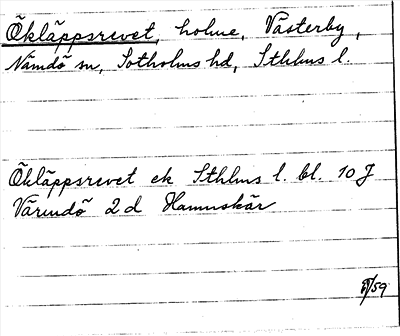 Ökläppsrevet, holme, Västerby,
Nämdö sn, Sotholms hd, Sthlms l.
Ökläppsrevet ek Sthlms l. bl. 10 J
Värmdö 2d Hamnskär
/59